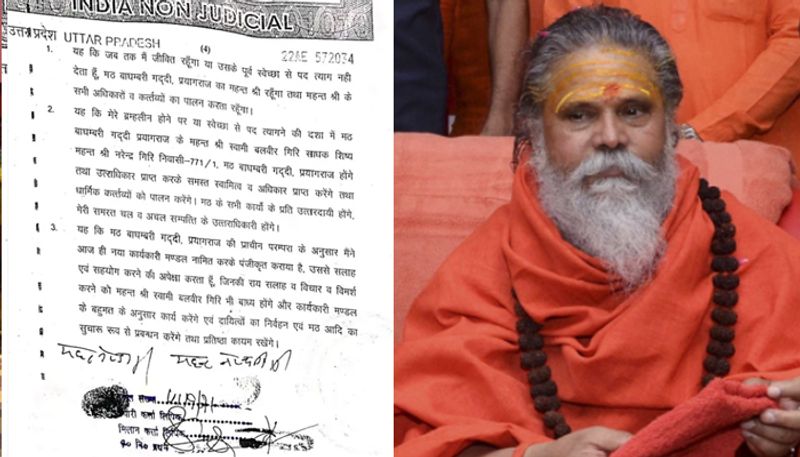 INDIA NON JUDICIAL
उत्तर प्रदेश UTTAR PRADESH
(4)
22AE 572034
1. यह कि जब तक मैं जीवित रहूँगा या उसके पूर्व स्वेच्छा से पद त्याग नही
देता हूँ, मठ बाघम्बरी गद्दी, प्रयागराज का महन्त श्री रहूँगा तथा महन्त श्री के
सभी अधिकारों व कर्त्तव्यों का पालन करता रहूँगा।
2. यह कि मेरे ब्रम्हलीन होने पर या स्वेच्छा से पद त्यागने की दशा में मठ
बाघम्बरी गद्दी प्रयागराज के महन्त श्री स्वामी बलवीर गिरि साधक शिष्य
महन्त श्री नरेन्द्र गिरि निवासी-771/1, मठ बाघम्बरी गद्दी, प्रयागराज होंगे
तथा उत्तराधिकार प्राप्त करके समस्त स्वामित्व व अधिकार प्राप्त करेंगे तथा
धार्मिक कर्त्तव्यों को पालन करेंगे। मठ के सभी कार्यो के प्रति उत्तरदायी होंगे,
मेरी समस्त चल व अचल सम्पत्ति के उत्तराधिकारी होंगे।
3. यह कि मठ बाघम्बरी गद्दी, प्रयागराज की प्राचीन परम्परा के अनुसार मैंने
आज ही नया कार्यकारी मण्डल नामित करके पंजीकृत कराया है, उससे सलाह
एवं सहयोग करने की अपेक्षा करता हूँ, जिनकी राय सलाह व विचार व विमर्श
करने को महन्त श्री स्वामी बलवीर गिरि भी बाध्य होंगे और कार्यकारी मण्डल
के बहुमत के अनुसार कार्य करेंगे एवं दायित्वों का निर्वहन एवं मठ आदि का
सुचारू रूप से प्रबन्धन करेंगे तथा प्रतिष्ठा कायम रखेंगे।
कर्त्ता लिपिक
मिलान कर्त्ता लिपिक